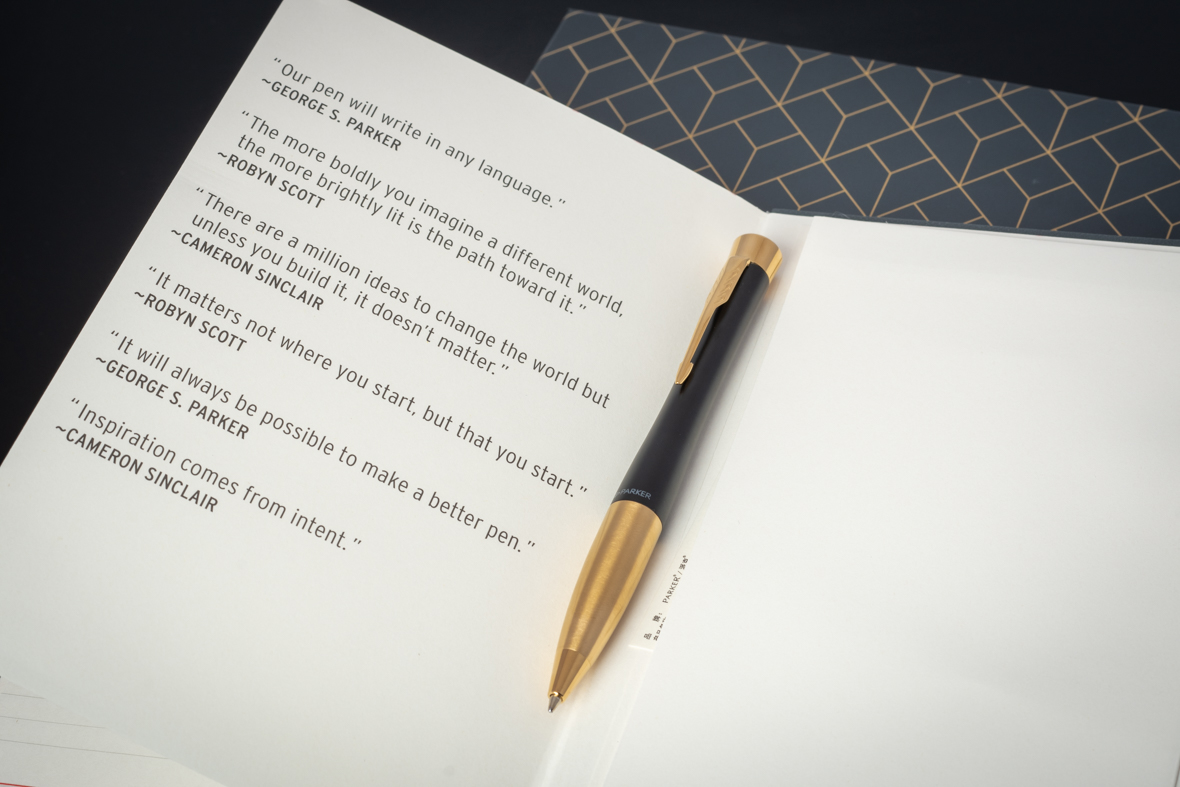 “Our pen will write in any language.”
~GEORGE S. PARKER
“The more boldly you imagine a different world,
the more brightly lit is the path toward it.”
~ROBYN SCOTT
“There are a million ideas to change the world but
unless you build it, it doesn’t matter.”
~CAMERON SINCLAIR
“It matters not where you start, but that you start.”
~ROBYN SCOTT
“It will always be possible to make a better pen.”
~GEORGE S. PARKER
“Inspiration comes from intent.”
~CAMERON SINCLAIR
PARKER
品 牌： PARKER®/派克®